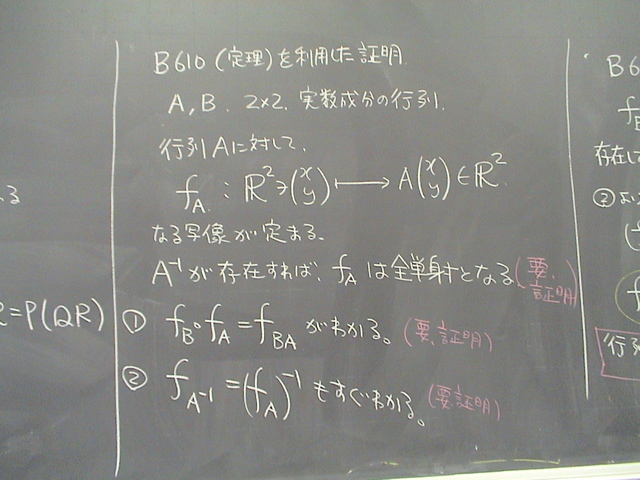 る
Q=P(QR)
B610 (定理)を利用した証明.
A,B. 2×2. 実数成分の行列.
行列Aに対して,
f_A : ℝ²∋(x y) ⟼ A(x y)∈ℝ².
なる写像が定まる.
A⁻¹が存在すれば, f_A は全単射となる(要.証明)
① f_B∘f_A=f_BA がわかる。(要.証明)
② f_A⁻¹=(f_A)⁻¹ もすぐわかる。(要.証明)
B610
f_B
存在して
③ より
(f
f
行列